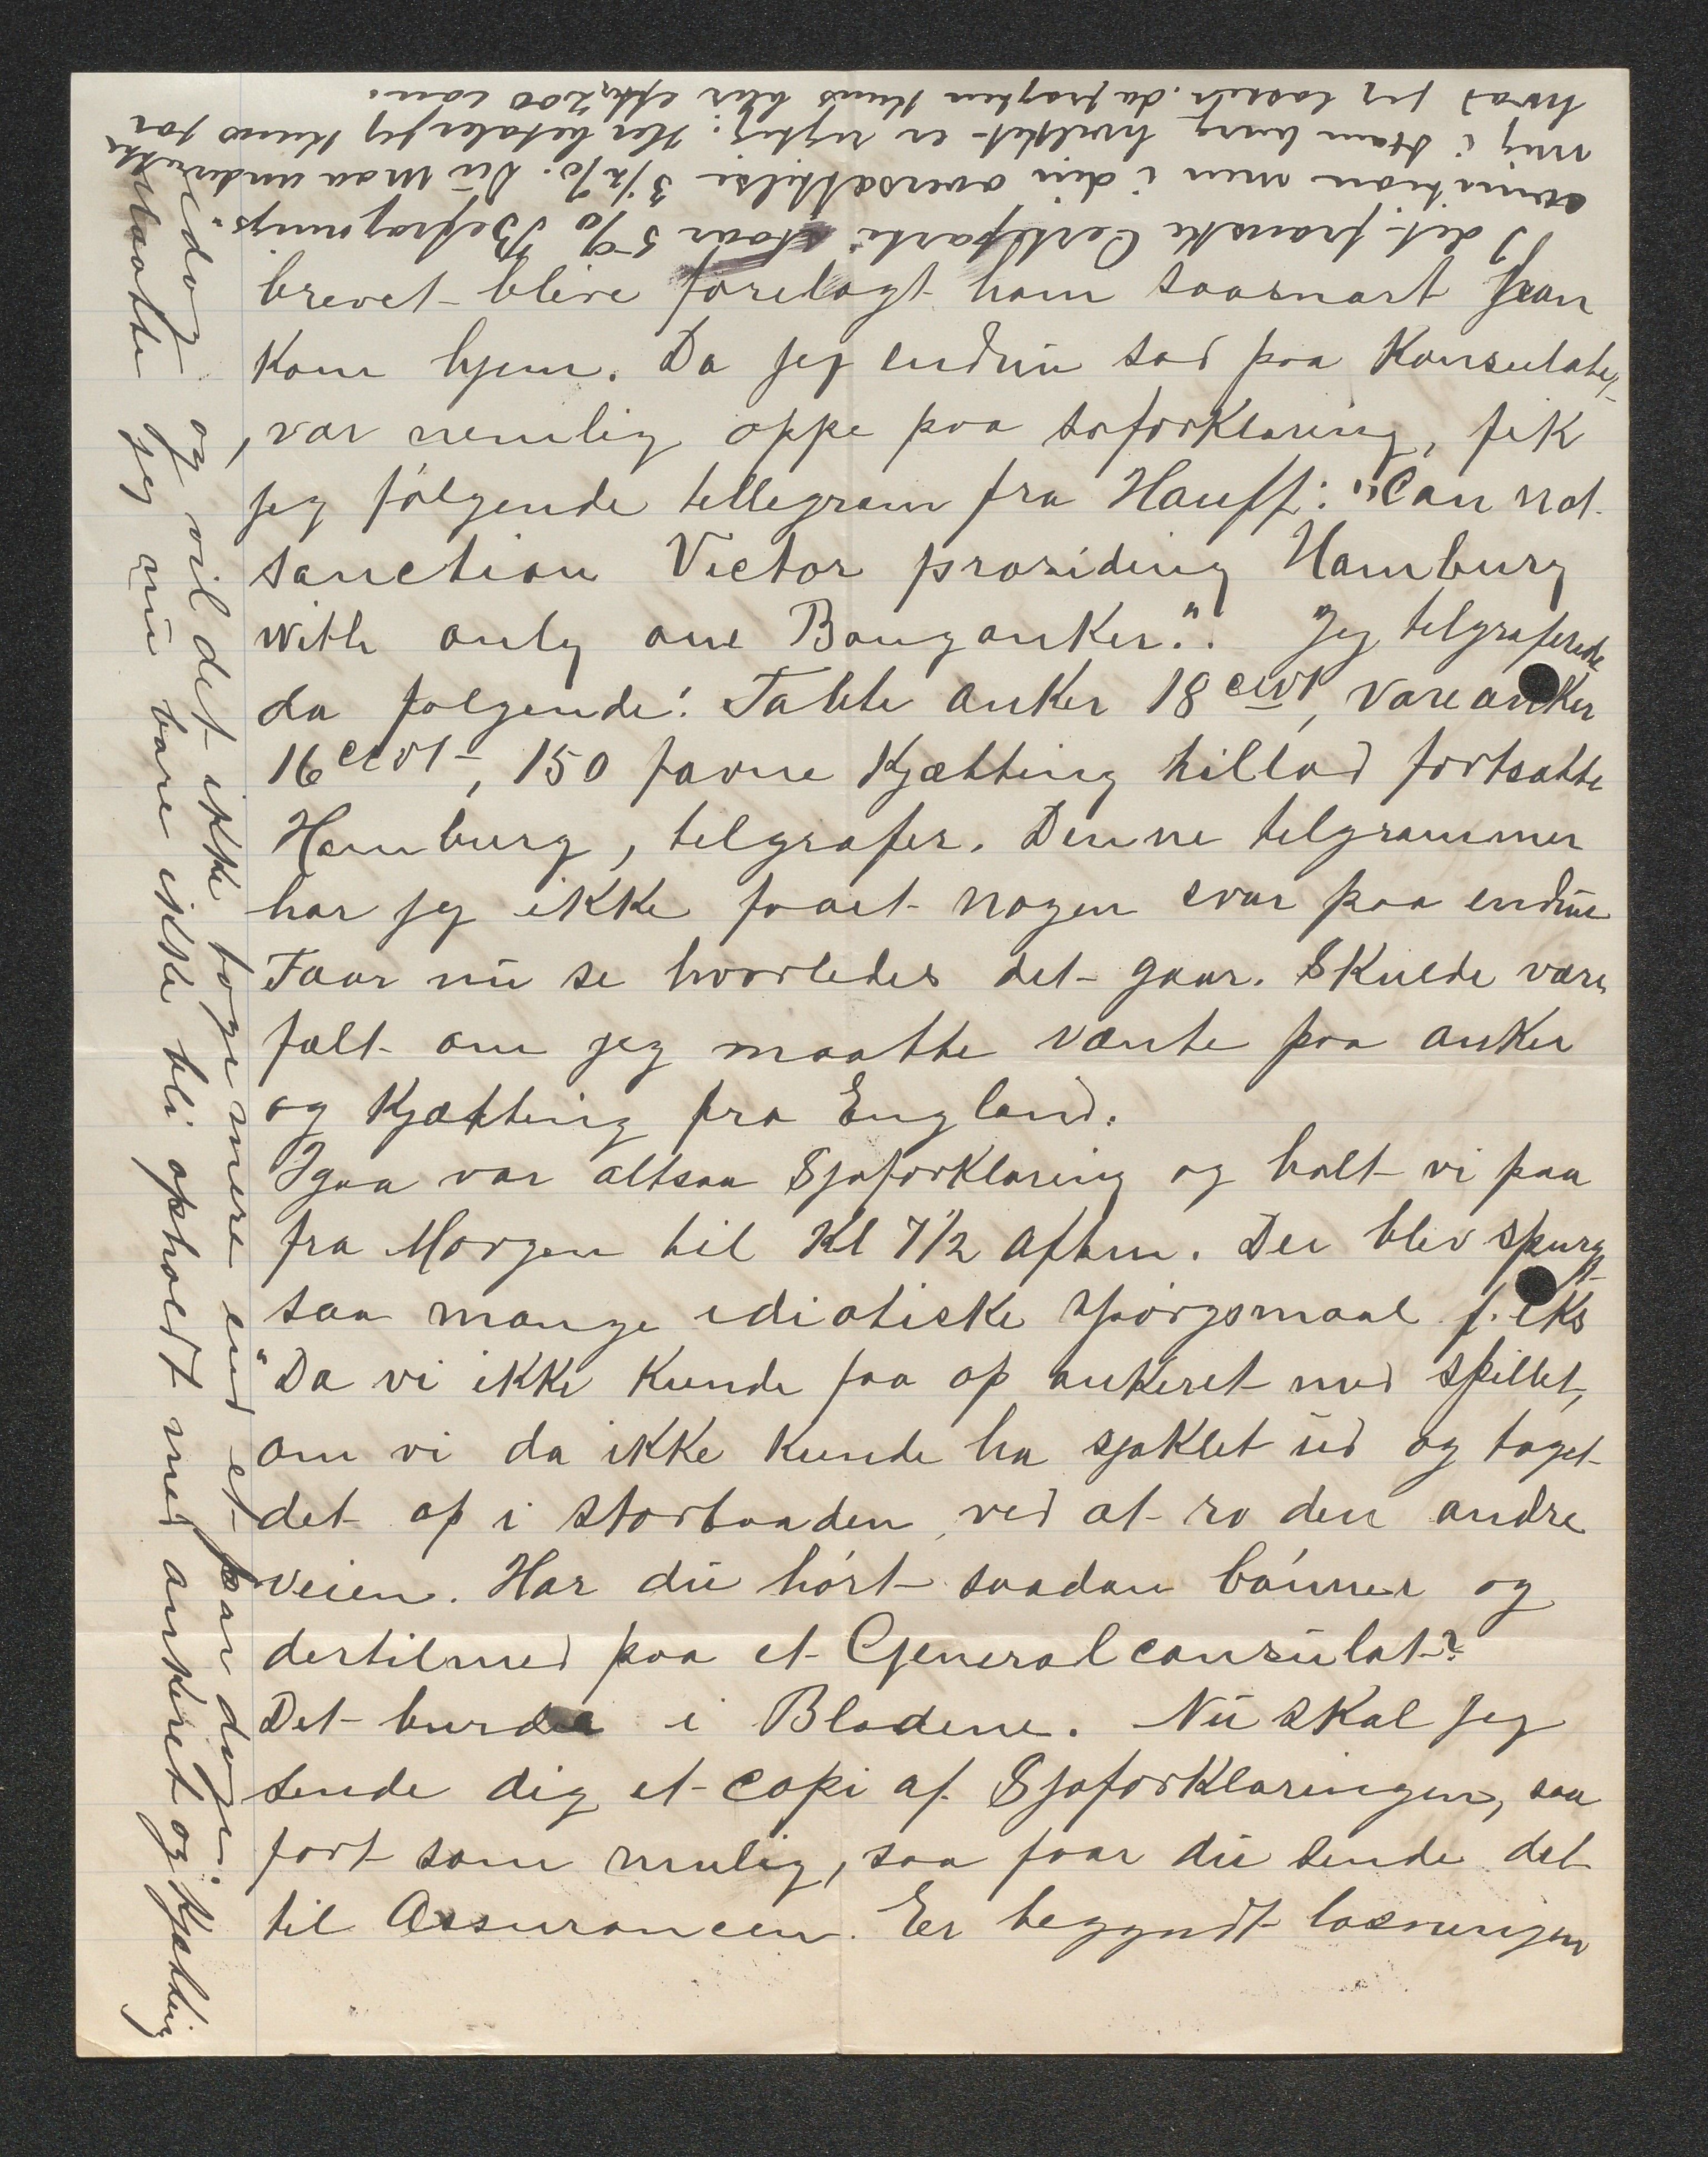 brevet blive forelagt ham saasnart han
kom hjem. Da jeg endnu sad paa Konsulatet,
var nemlig oppe paa søforklaring, fik
jeg følgende tellegram fra Hauff: "Can not
sanction Victor prosiding Hamburg
with only one Bouganker". Jeg telgraferede
da følgende: Tabte anker 18 cwt, vareanker
16 cwt, 150 favne Kjætting tillad fortsætte
Hamburg, telgrafer. Denne telgrammer
har jeg ikke faaet nogen svar paa endnu
Faar nu se hvorledes det gaar. Skulde være
fælt om jeg maatte vænte paa anker
og Kjætting fra England.
Igaa var altsaa Sjøforklaring og holt vi paa
fra Morgen til Kl 7 1/2 Aften. Der blev spurgt
saa mange idiotiske spørgsmaal f. eks
"Da vi ikke kunde faa op ankeret med spillet,
om vi da ikke kunde ha sjaklet ud og taget
det op i storbaaden ved at ro den andre
veien. Har du hørt saadan bønner og
dertilmed paa et Generalconsulat?
Det burde i Bladene. Nu skal jeg
sende dig et copi af Sjøforklaringen, saa
fort som mulig, saa faar du sende det
til Assurancen. Er begyndt losningen
idag og vil det ikke tage mere end et par dage.
Maatte jeg nu bare ikke bli opholdt med ankeret og Kjætting
I det franske Certeparti staar 5% Befragtnings-
comition men i din oversættelse 3 1/2 %. Du maa underrette
mig i Hamburg hvilket er rigtig. Her betaler jeg kun for
hvad jeg losser. da fragten kuns blir efter 200 tons.